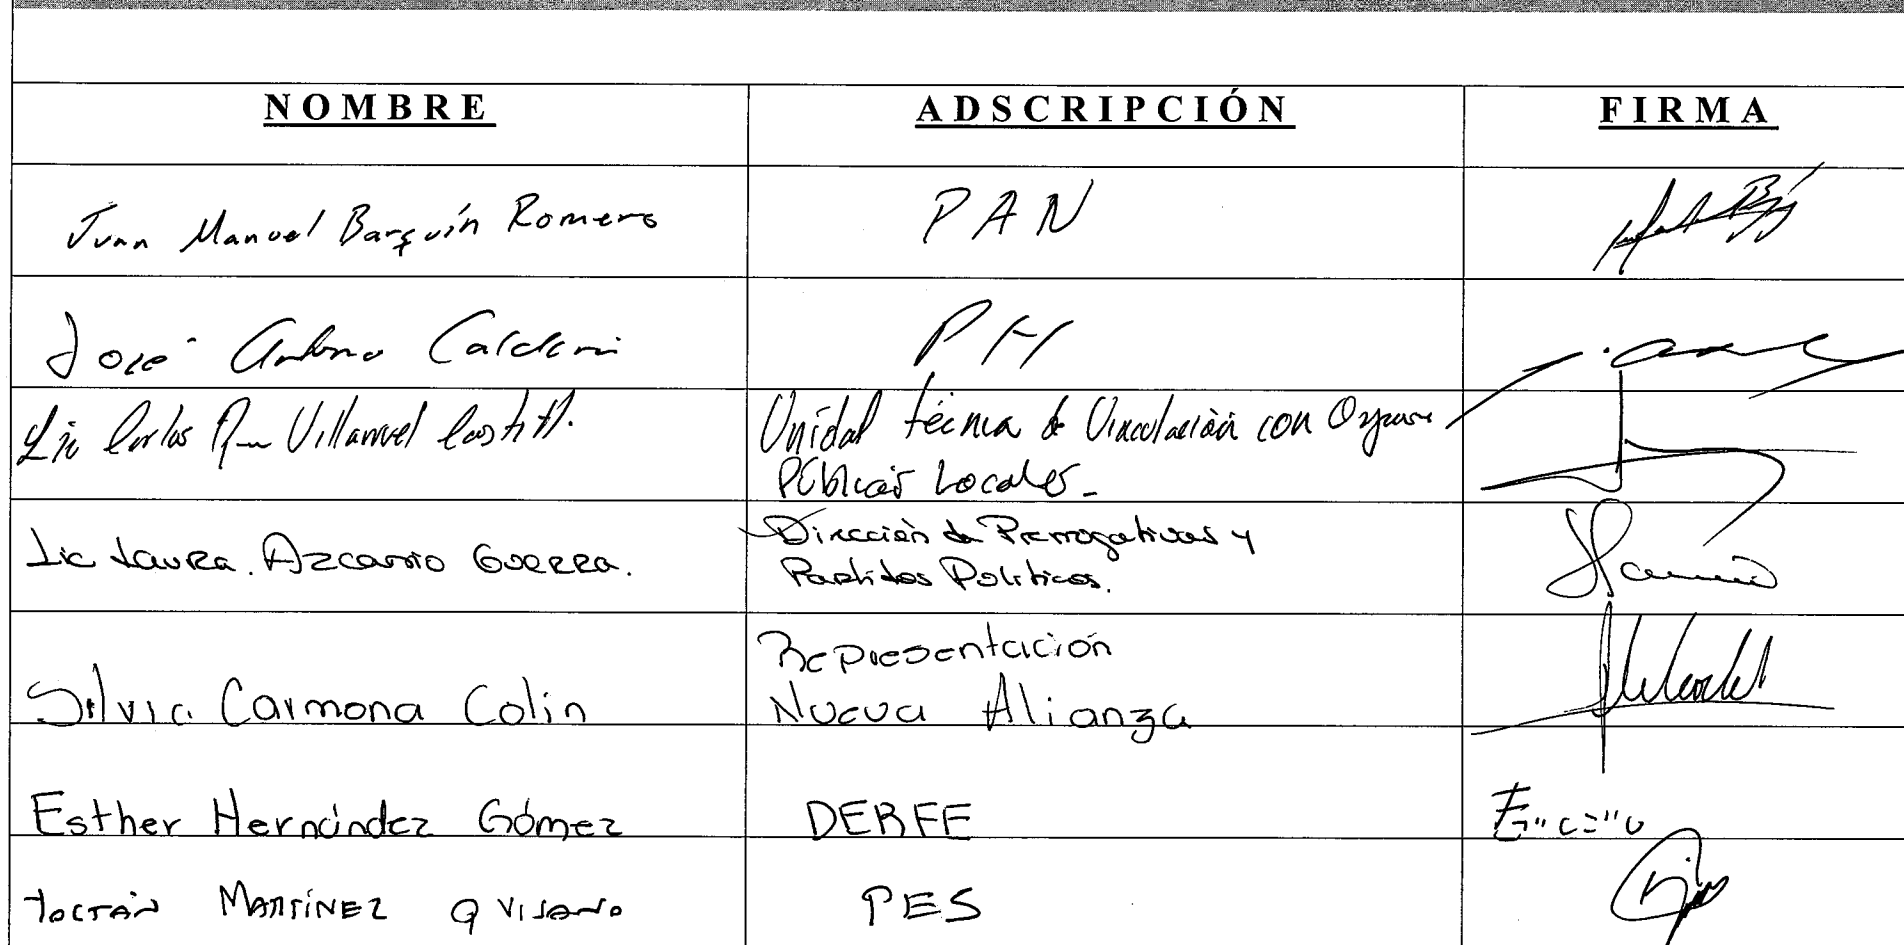 NOMBRE ADSCRIPCIÓN FIRMA
Juan Manuel Barquín Romero PAN
José Antonio Calderón PH
Lic Carlos Villanuel Unidad técnica de Vinculación con
Públicos Locales
Lic Laura. Azcorro Guerra. Dirección de Prerrogativas y
Partidos Políticos.
Representación
Silvia Carmona Colin Nueva Alianza
Esther Hernández Gómez DERFE
MARTÍNEZ PES